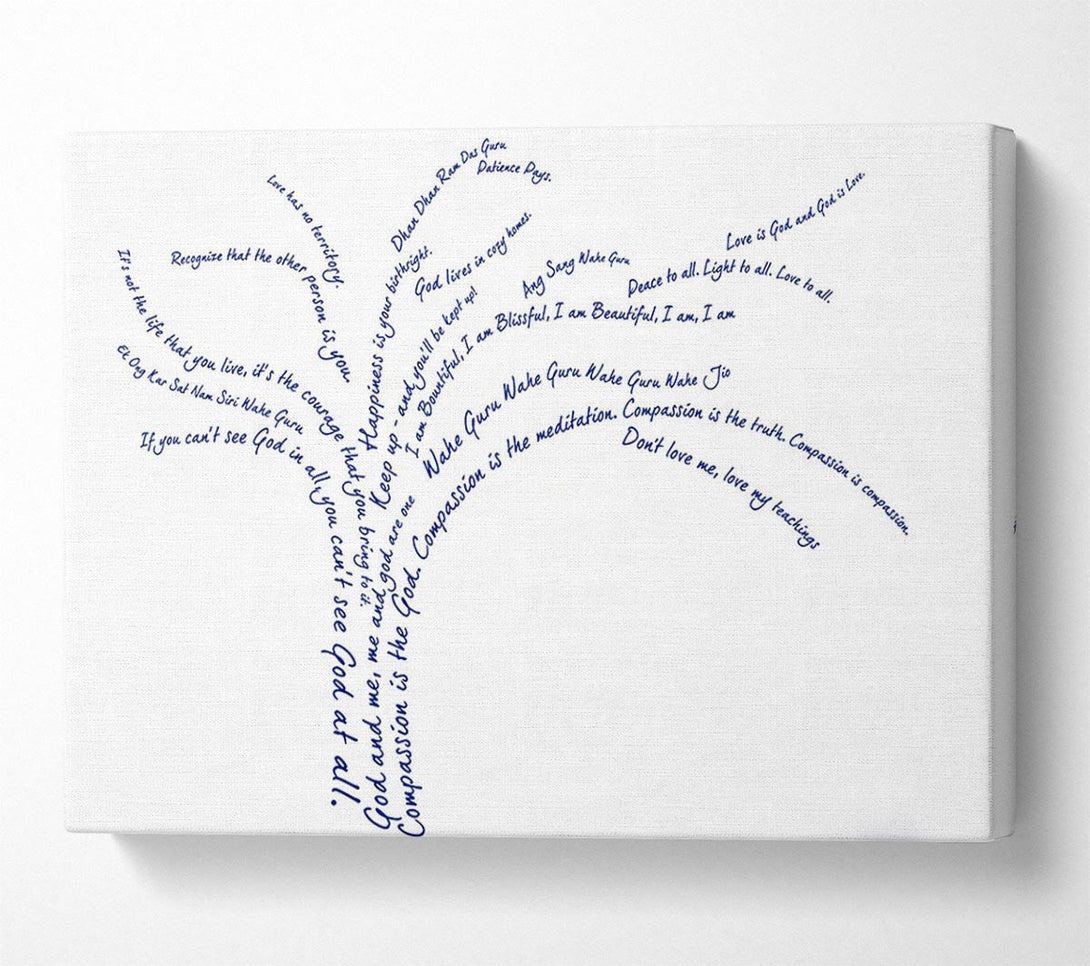 Dhan Dhan Ram Das Guru
Patience Pays.
Love has no territory.
Love is God and God is Love.
God lives in cozy homes.
Recognize that the other person is you.
Happiness is your birthright.
Ang Sang Wahe Guru
Peace to all. Light to all. Love to all.
It's not the life that you live, it's the courage that you bring to it.
Keep up - and you'll be kept up!
I am Bountiful, I am Blissful, I am Beautiful, I am, I am
Ek Ong Kar Sat Nam Siri Wahe Guru
Wahe Guru Wahe Guru Wahe Guru Wahe Jio
If you can't see God in all, you can't see God at all.
God and me, me and god are one
Compassion is the God. Compassion is the meditation. Compassion is the truth. Compassion is compassion.
Don't love me, love my teachings